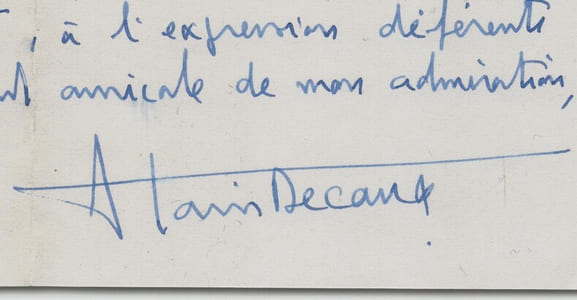 , à l'expression déférente
amicale de mon admiration,
Alain Decaux